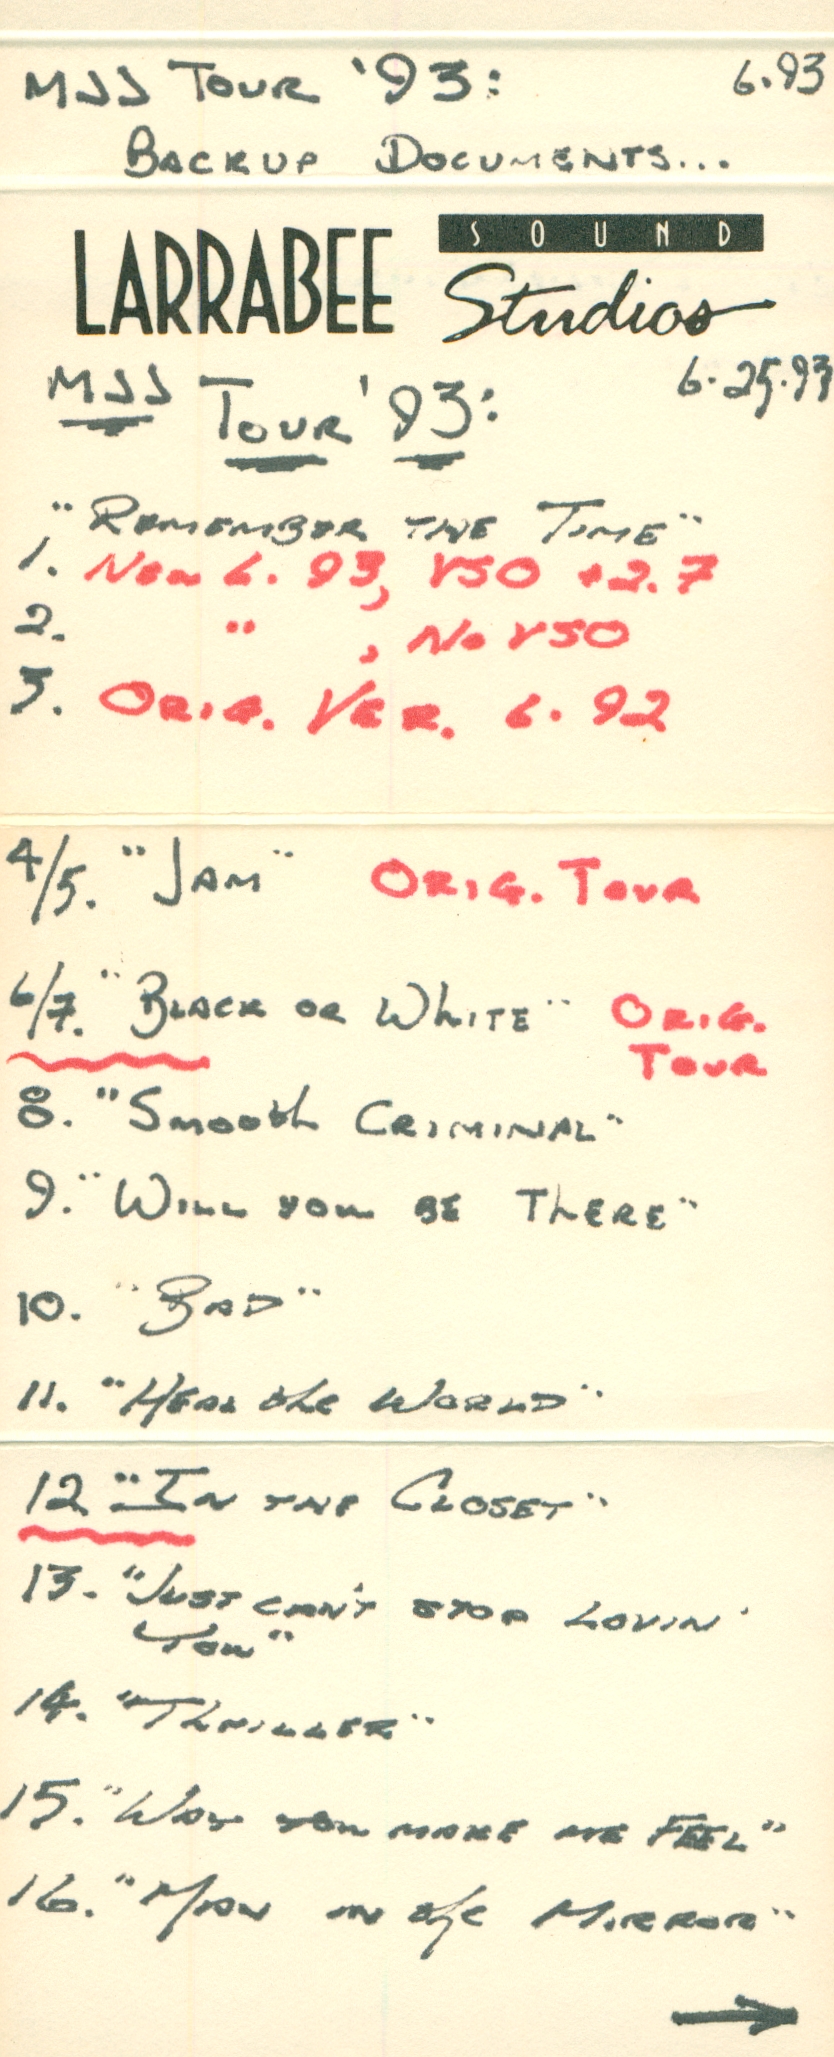 MJJ TOUR '93: 6.93
BACKUP DOCUMENTS...
LARRABEE SOUND Studios
MJJ TOUR '93: 6.25.93
"REMEMBER THE TIME"
1. NEW 6.93, VSO +2.7
2. " , No VSO
3. ORIG. VER. 6.92
4/5. "JAM" ORIG. TOUR
6/7. "BLACK OR WHITE" ORIG.
TOUR
8. "Smooth CRIMINAL"
9. "WILL YOU BE THERE"
10. "BAD"
11. "HEAL the WORLD"
12 "IN THE CLOSET"
13. "JUST CAN'T STOP LOVIN'
YOU"
14. "THRILLER"
15. "WAY YOU MAKE ME FEEL"
16. "MAN IN the MIRROR"
→